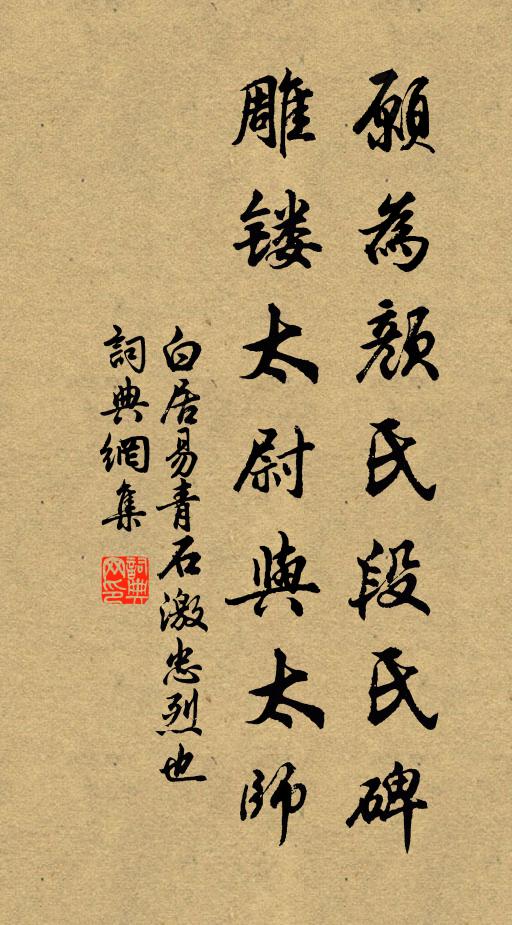 願為顏氏段氏碑
雕鏤太尉與太師
白居易青石激忠烈也
詞典網集
詞典网印